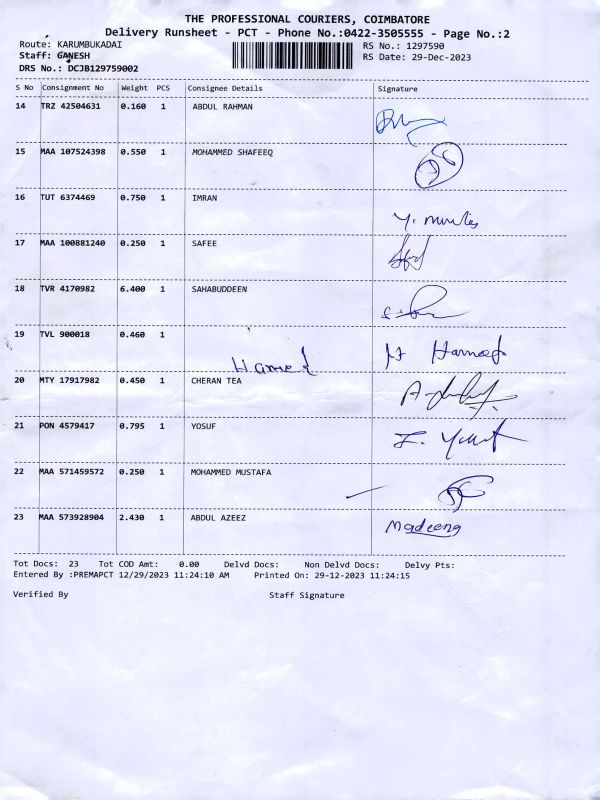 THE PROFESSIONAL COURIERS, COIMBATORE
Delivery Runsheet - PCT - Phone No.:0422-3505555 - Page No.:2
Route: KARUMBUKADAI RS No.: 1297590
Staff: GANESH RS Date: 29-Dec-2023
DRS No.: DCJB129759002
S No Consignment No Weight PCS Consignee Details Signature
14 TRZ 42504631 0.160 1 ABDUL RAHMAN
15 MAA 107524398 0.550 1 MOHAMMED SHAFEEQ
16 TUT 6374469 0.750 1 IMRAN
17 MAA 100881240 0.250 1 SAFEE
18 TVR 4170982 6.400 1 SAHABUDDEEN
19 TVL 900018 0.460 1
Hamed H Hameed
20 MTY 17917982 0.450 1 CHERAN TEA
21 PON 4579417 0.795 1 YOSUF
22 MAA 571459572 0.250 1 MOHAMMED MUSTAFA
23 MAA 573928904 2.430 1 ABDUL AZEEZ
Madeena
Tot Docs: 23 Tot COD Amt: 0.00 Delvd Docs: Non Delvd Docs: Delvy Pts:
Entered By :PREMAPCT 12/29/2023 11:24:10 AM Printed On: 29-12-2023 11:24:15
Verified By Staff Signature